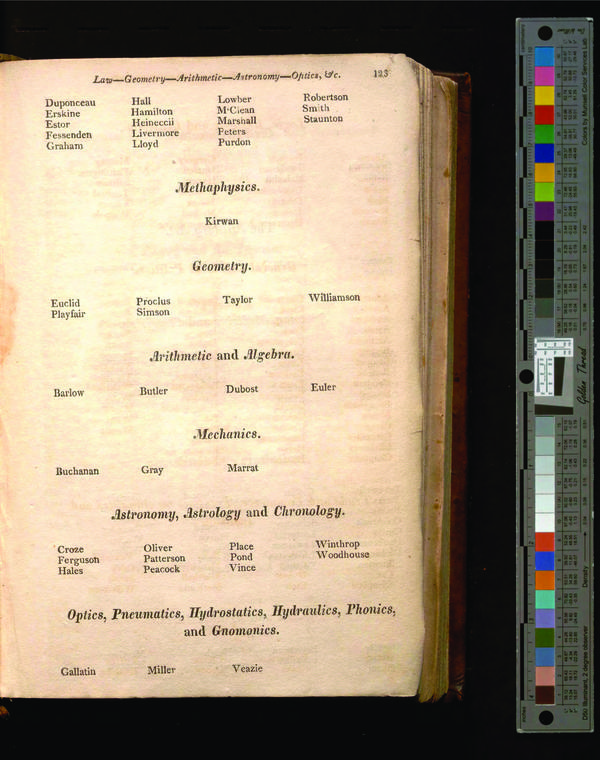 Law—Geometry—Arithmetic—Astronomy—Optics, &c. 123
Duponceau Hall Lowber Robertson
Erskine Hamilton McClean Smith
Estor Heineccii Marshall Staunton
Fessenden Livermore Peters
Graham Lloyd Purdon
Methaphysics.
Kirwan
Geometry.
Euclid Proclus Taylor Williamson
Playfair Simson
Arithmetic and Algebra.
Barlow Butler Dubost Euler
Mechanics.
Buchanan Gray Marrat
Astronomy, Astrology and Chronology.
Croze Oliver Place Winthrop
Ferguson Patterson Pond Woodhouse
Hales Peacock Vince
Optics, Pneumatics, Hydrostatics, Hydraulics, Phonics,
and Gnomonics.
Gallatin Miller Veazie
Colors by Munsell Color Services Lab
Golden Thread
Density
D50 Illuminant, 2 degree observer